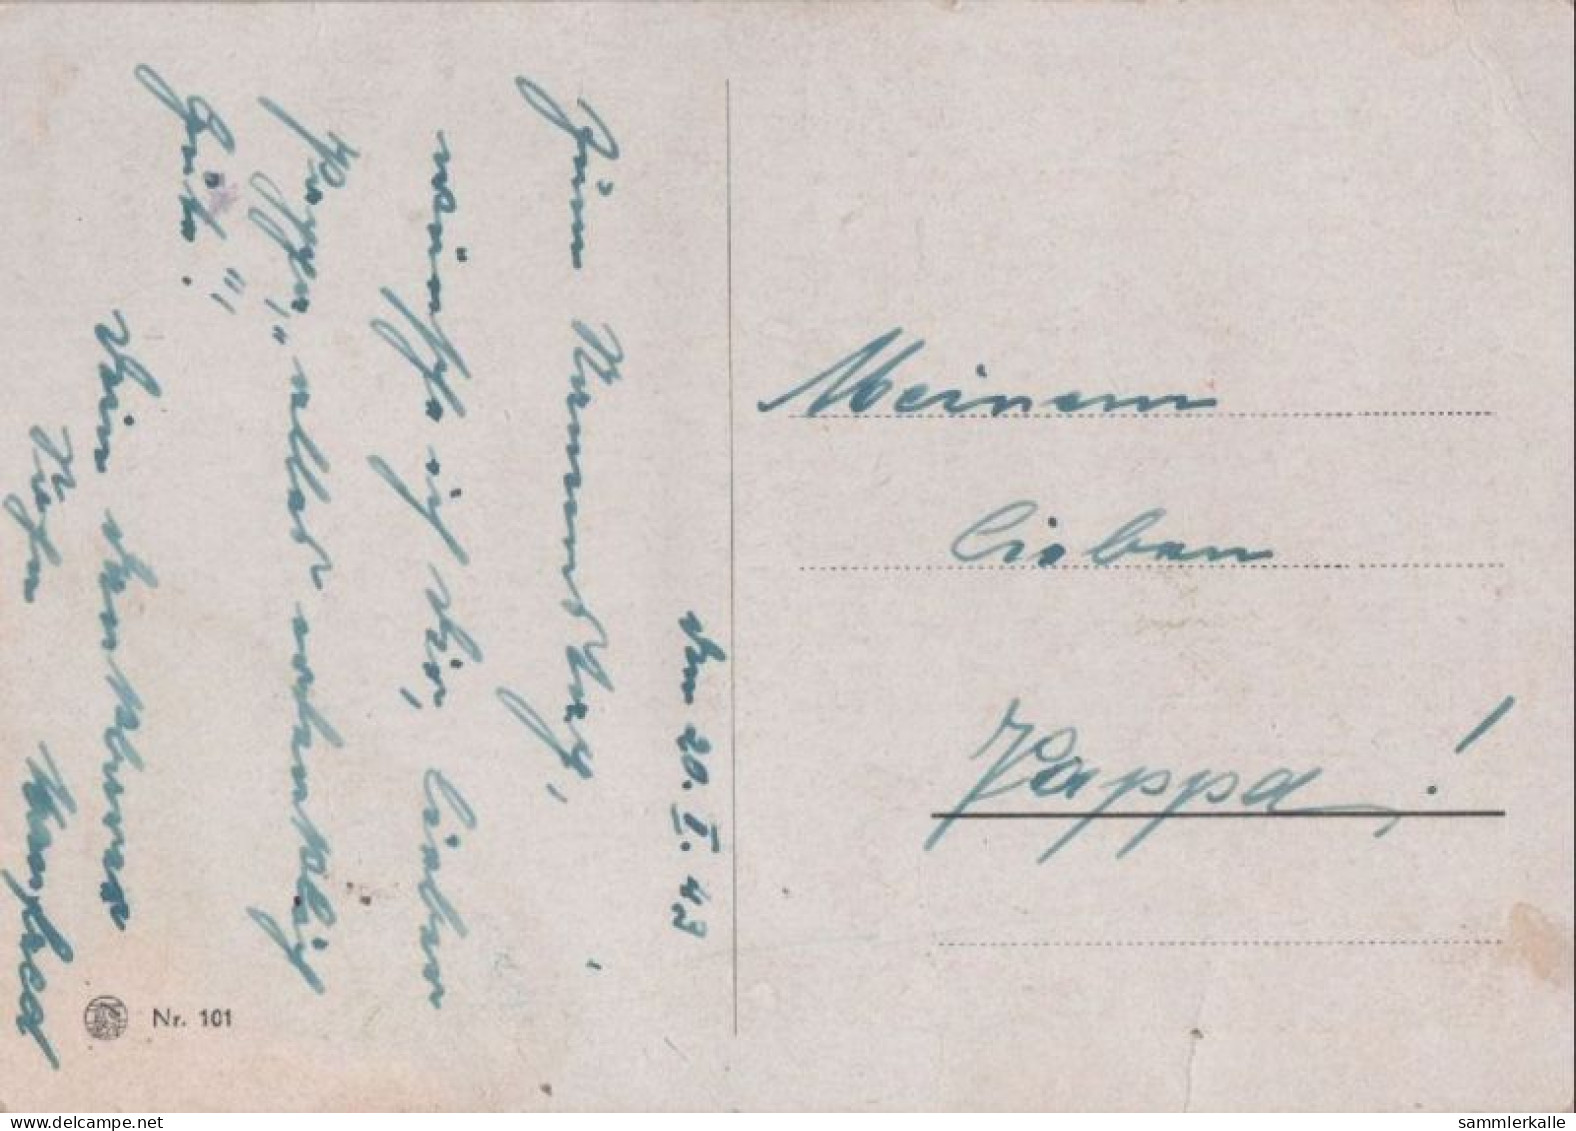 Den 20. I. 43
Zum Namenstag,
wünsche ich Dir, lieber
Pappa, "alles erdenklich
Gute!"
Dein dankbarer
Sohn Manfred
Meinem
lieben
Pappa!
Nr. 101
sammlerkalle